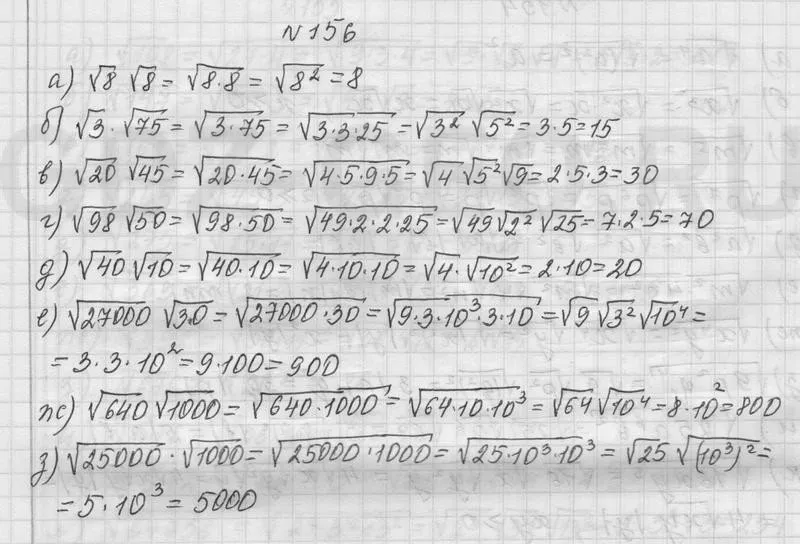 №156
а) √8 √8 = √(8·8) = √(8²) = 8
б) √3 · √75 = √(3·75) = √(3·3·25) = √(3²) √(5²) = 3·5 = 15
в) √20 √45 = √(20·45) = √(4·5·9·5) = √4 √(5²) √9 = 2·5·3 = 30
г) √98 √50 = √(98·50) = √(49·2·2·25) = √49 √(2²) √25 = 7·2·5 = 70
д) √40 √10 = √(40·10) = √(4·10·10) = √4 · √(10²) = 2·10 = 20
е) √27000 √30 = √(27000·30) = √(9·3·10³·3·10) = √9 √(3²) √(10⁴) =
= 3·3·10² = 9·100 = 900
ж) √640 √1000 = √(640·1000) = √(64·10·10³) = √64 √(10⁴) = 8·10² = 800
з) √25000 · √1000 = √(25000·1000) = √(25·10³·10³) = √25 √((10³)²) =
= 5·10³ = 5000